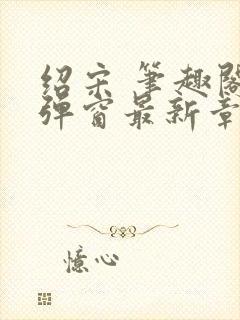 绍宋 笔趣阁
弹窗最新章
憶心